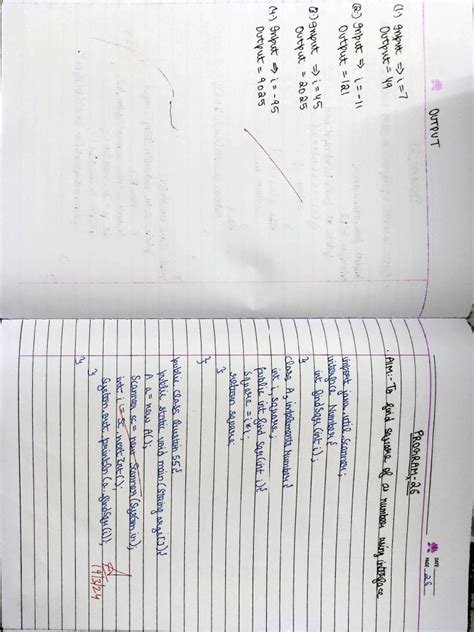 OUTPUT
(1) Input ⇒ i=7
Output = 49
(2) Input ⇒ i=-11
Output = 121
(3) Input ⇒ i=45
Output = 2025
(4) Input ⇒ i=-95
Output = 9025
DATE
PAGE 26
PROGRAM-26
AIM:- To find square of a number using interface
import java.util.Scanner;
interface Number{
int findSqr(int i);
}
class A implements Number{
int i, square;
public int findSqr(int i){
square = i*i;
return square;
}
}
public class Question55{
public static void main(String args[]){
A a = new A();
Scanner sc = new Scanner(System.in);
int i = sc.nextInt();
System.out.println(a.findSqr(i));
}
}
19/3/24